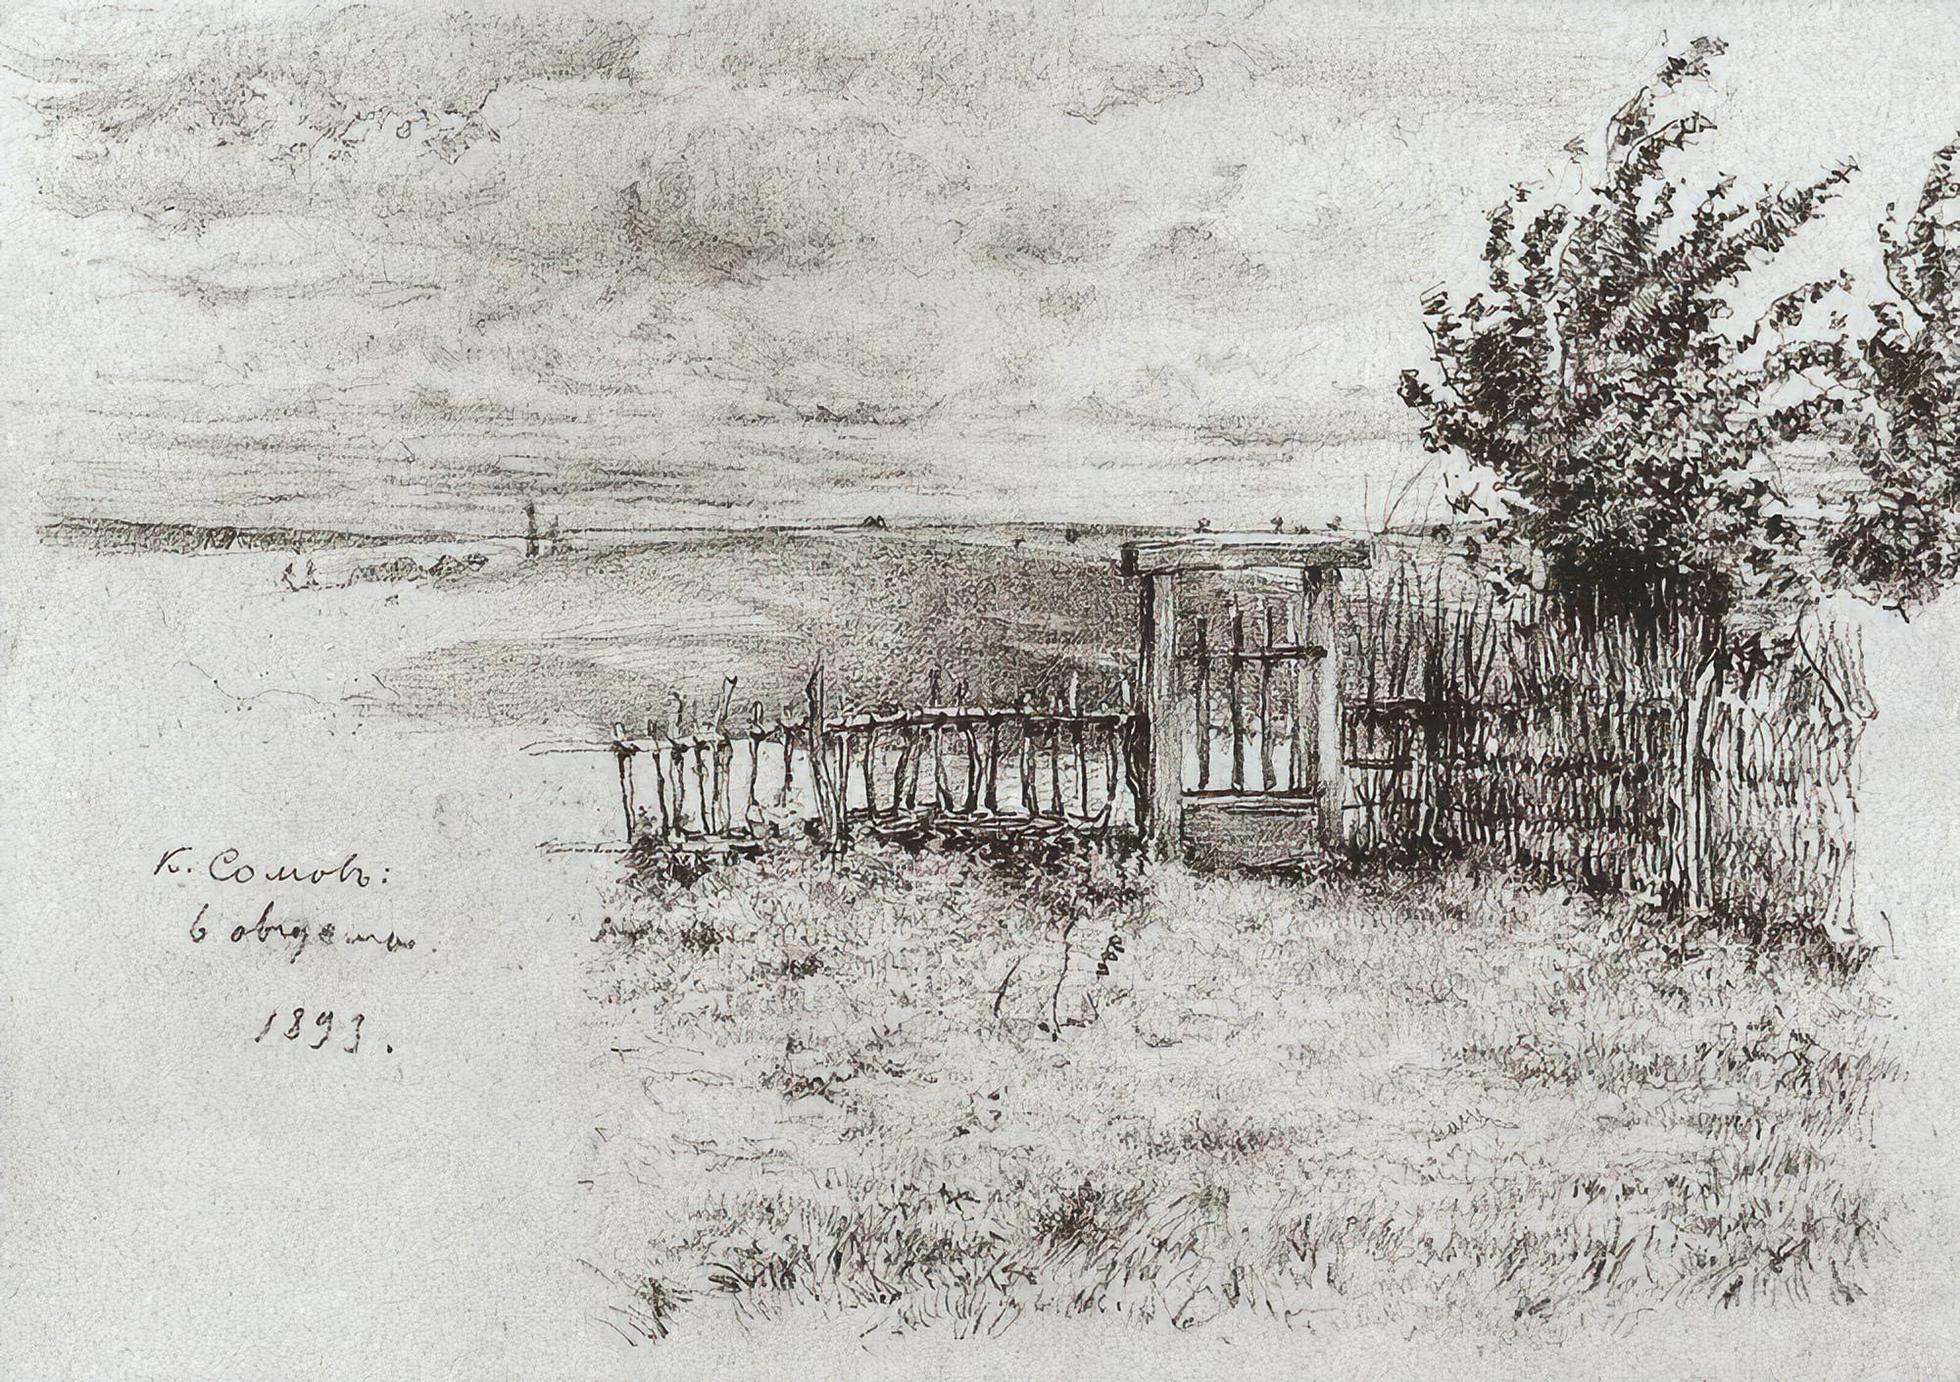 К. Сомовъ:
6 августа.
1893.